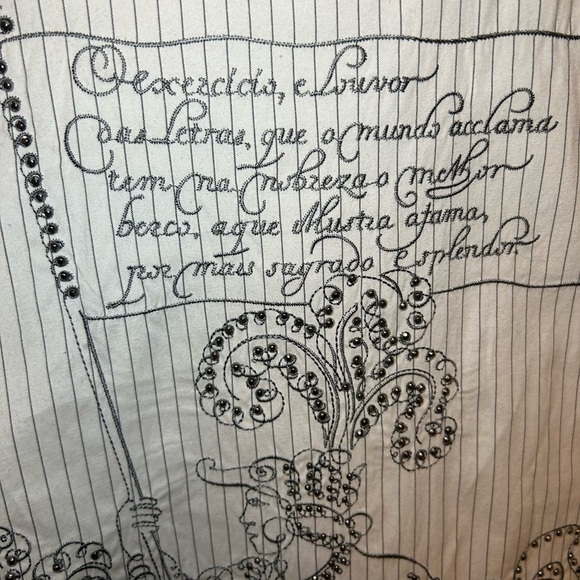 O exercicio, e Louvor
das Letras, que o mundo acclama
tem na nobreza o melhor
berco, aque illustra afama,
por mais sagrado esplendor.